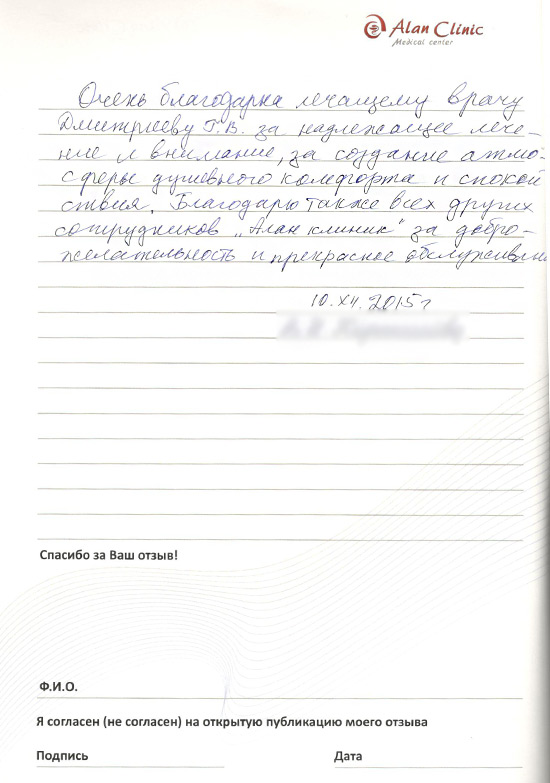 Alan Clinic
Medical center
Очень благодарна лечащему врачу
Дмитриеву Г.В. за надлежащее лече-
ние и внимание, за создание атмо-
сферы душевного комфорта и спокой
ствия. Благодарю также всех других
сотрудников „Алан клиник" за добро-
желательность и прекрасное обслуживан
10.XII.2015г
Спасибо за Ваш отзыв!
Ф.И.О.
Я согласен (не согласен) на открытую публикацию моего отзыва
Подпись Дата